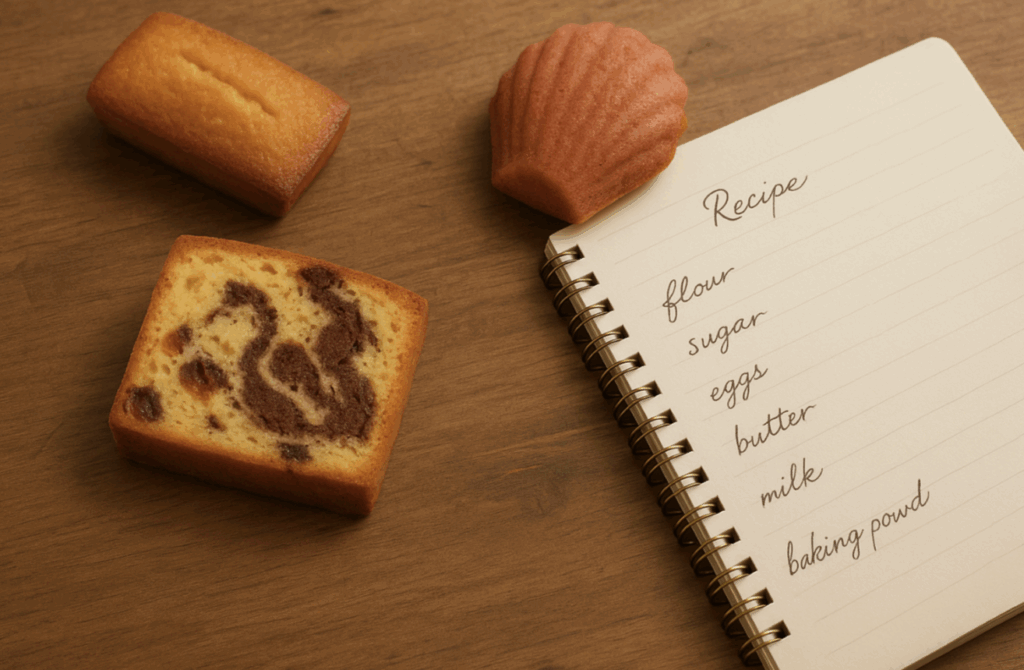 Recipe
flour
sugar
eggs
butter
milk
baking powd